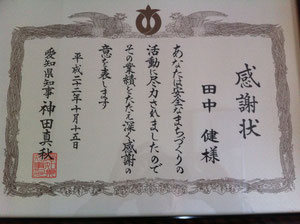 感謝状
田中 健様
あなたは安全なまちづくりの
活動に尽力されましたので
その業績をたたえ深く感謝の
意を表します
平成二十二年十月十五日
愛知県知事 神田真秋